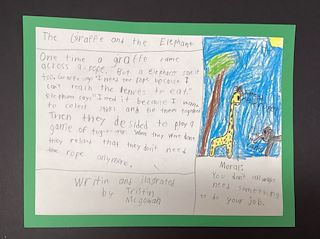 The Graffe and the Elephant
One time a giraffe came
across a rope. "But a elephant saw it
too. Giraffe says "I need the rope because I
can't reach the leaves to eat."
Elephant says "I need it because I want
to colect and tie them together
Then they desided to play a
game of tug-a-war. When they were done
they relised that they don't need
the rope anymore.
Writin and ilastrated
by Tristin
McGowan
Moral:
You don't always
need something
to do your job.